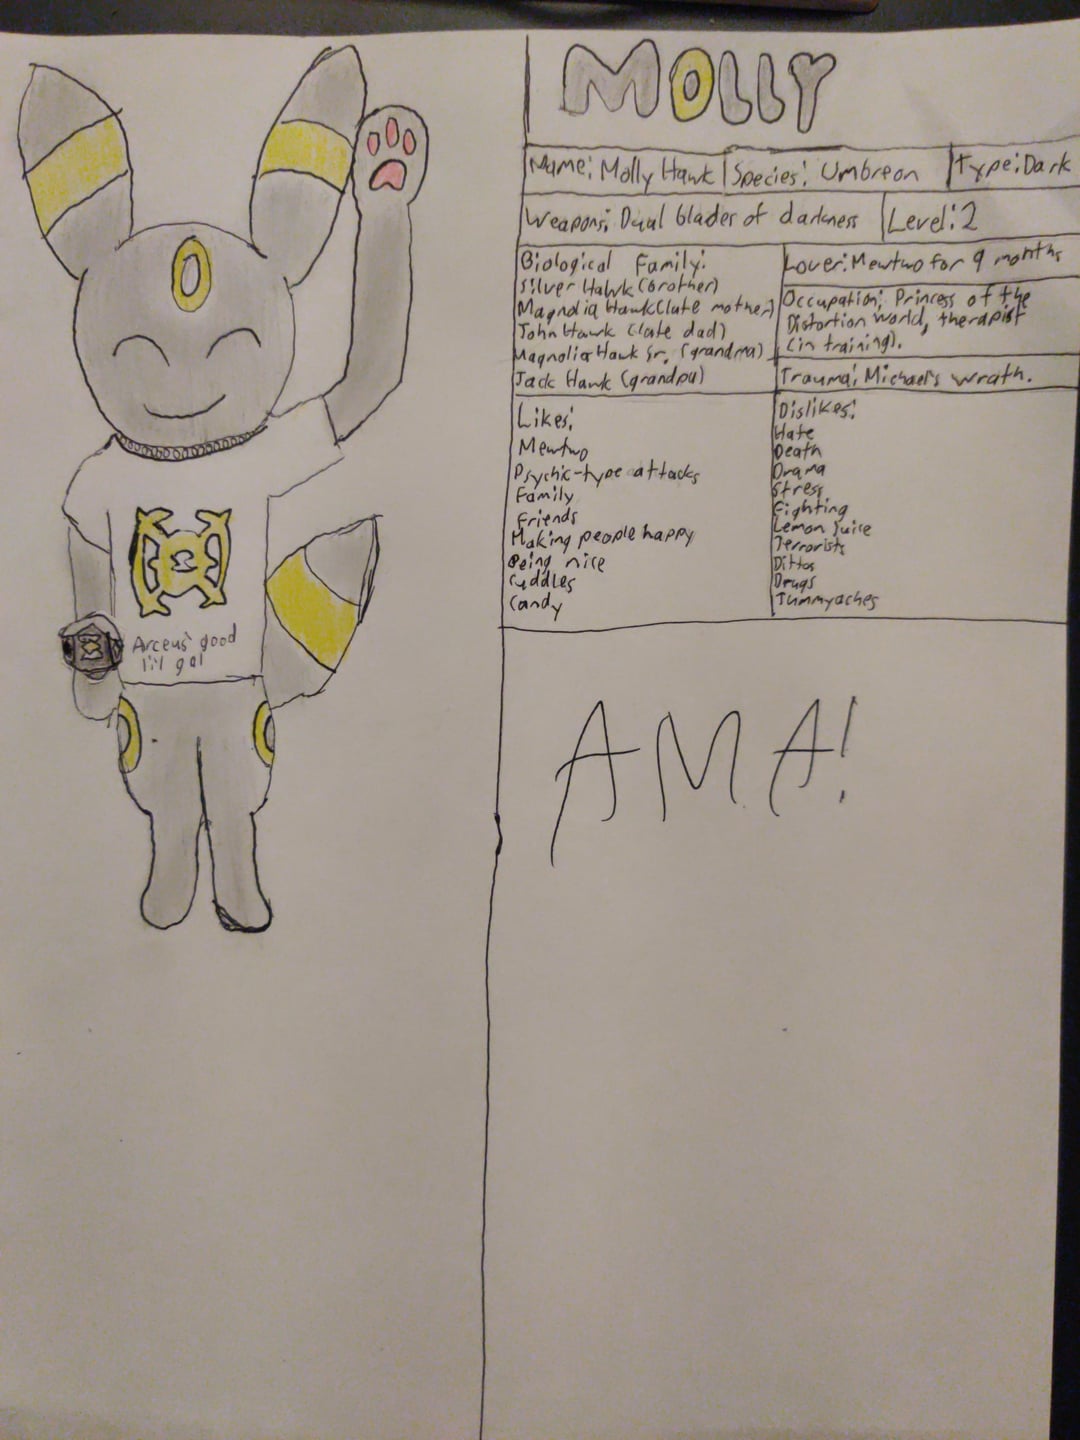 MOLLY
Name: Molly Hawk
Species: Umbreon
Type: Dark
Weapons: Dual blades of darkness
Level: 2
Biological Family:
Silver Hawk (brother)
Magnolia Hawk (late mother)
John Hawk (late dad)
Magnolia Hawk Sr. (grandma)
Jack Hawk (grandpa)
Lover: Mewtwo for 9 months
Occupation: Princess of the
Distortion World, therapist
(in training).
Trauma: Michael's wrath.
Likes:
Mewtwo
Psychic-type attacks
Family
Friends
Making people happy
Being nice
Cuddles
Candy
Dislikes:
Hate
Death
Drama
Stress
Fighting
Lemon juice
Terrorists
Dittos
Drugs
Tummyaches
Arceus' good
li'l gal
AMA!